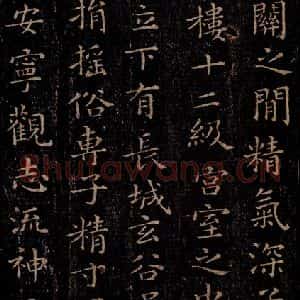 關之閒精氣深
樓十二級宮室之
立下有長城玄谷
捐搖俗專子精寸
安寧觀志流神
Shufawang.CN